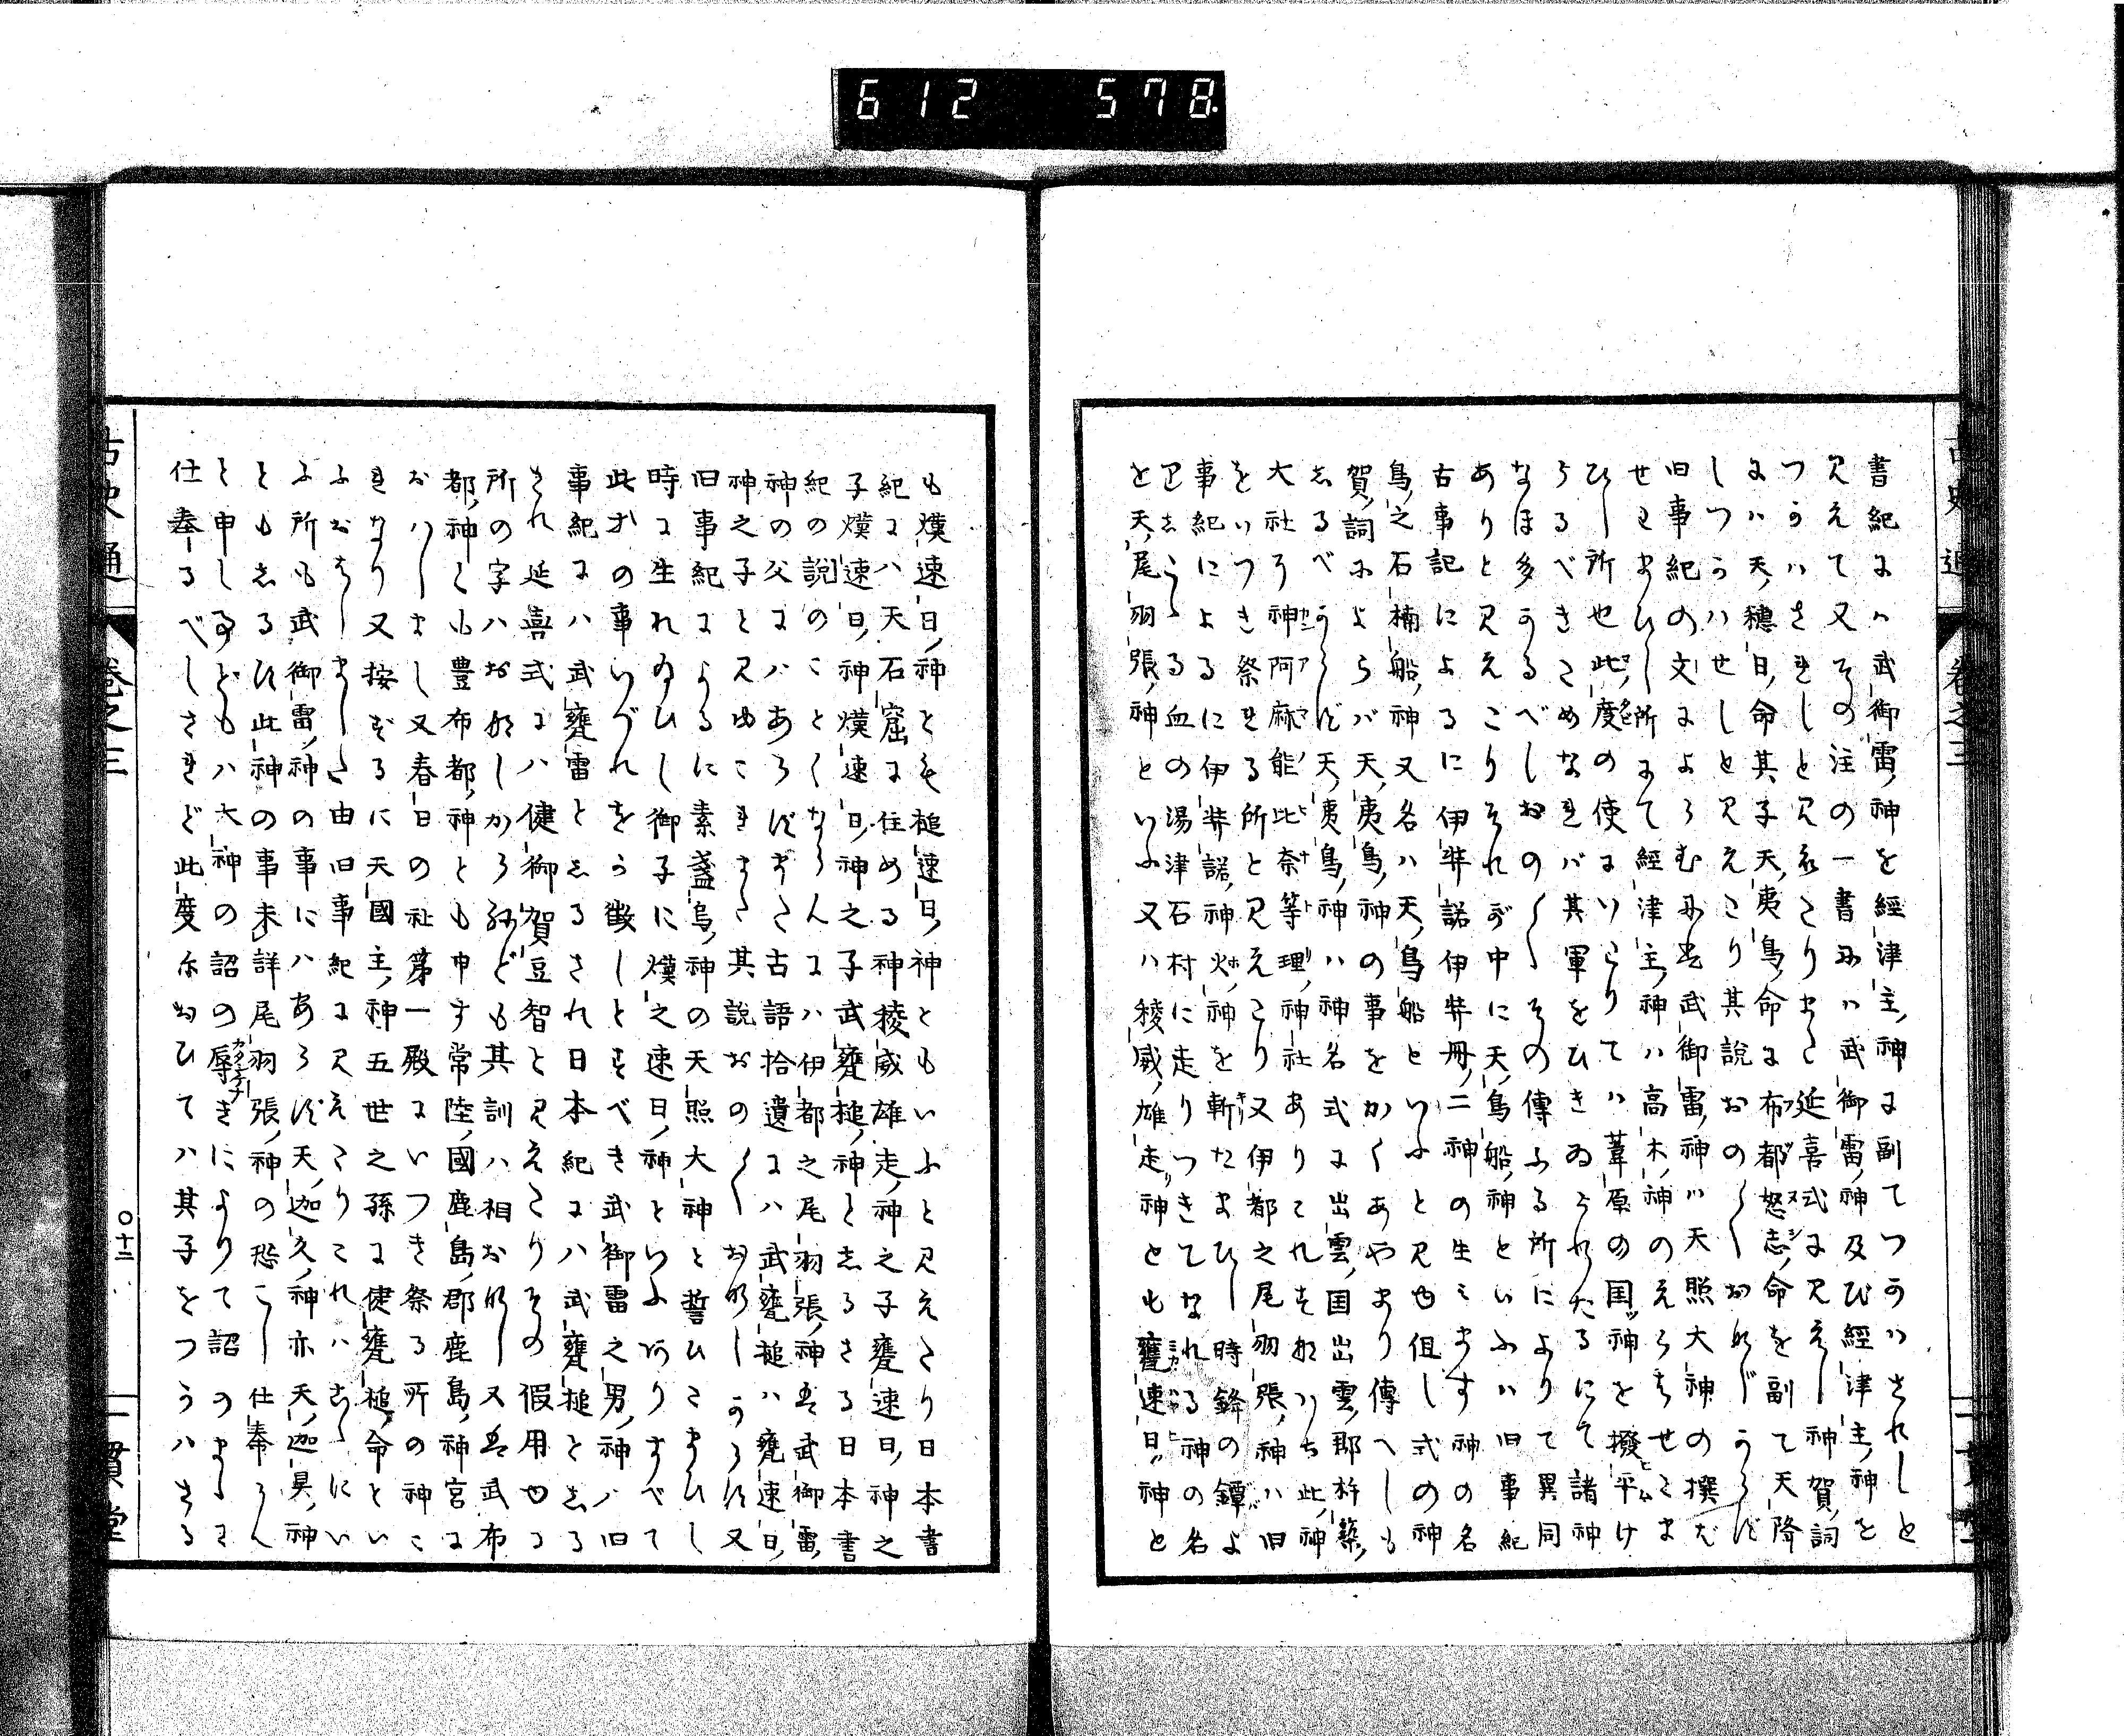 612 578
古史通 卷之三
書紀には武御雷神を經津主神に副てつかはされしと
見えて又その注の一書には武御雷神及び經津主神を
つかはされしと見えたりまた延喜式に見えし神賀詞
には天穗日命其子天夷鳥命に布都怒志命を副て天降
しつかはせしと見えたり其說おの〱おなじからず
旧事紀の文によらむには武御雷神は天照大神の撰び
せ玉ひし所にて經津主神は高木神のえらませたま
ひし所也此度の使にいたりては葦原の国神を撥平け
らるべきためなれば其軍をひきゐられたるにて諸神
なほ多かるべしおの〱その傳ふる所によりて異同
ありと見えたりそれが中に天鳥船神といふは旧事紀
古事記によるに伊弉諾伊弉冊二神の生ミます神の名
鳥之石楠船神又名ハ天鳥船といふと見ゆ但し式の神
賀詞によらば天夷鳥神の事をかくあやまり傳へしも
しるべからず天夷鳥神ハ神名式に出雲国出雲郡杵築
大社ろ神阿麻能比奈等理神社ありこれすなハち此神
をいつき祭れる所と見えたり又伊都之尾羽張神ハ旧
事紀によるに伊弉諾神火神を斬たまひし時鋒の鐔よ
りしたゝる血の湯津石村に走りつきてなれる神の名
を天尾羽張神といふ又ハ稜威雄走神とも甕速日神と
も熯速日神とも槌速日神ともいふと見えたり日本書
紀にハ天石窟に住める神稜威雄走神之子甕速日神之
子熯速日神熯速日神之子武甕槌神としるさる日本書
紀の說のことくならんにハ伊都之尾羽張神は武御雷
神の父にハあらずまた古語拾遺にハ武甕槌ハ甕速日
神之子と見ゆこれまた其說おの〱おなしからず又
旧事紀によるに素盞烏神の天照大神と誓ひたまひし
時に生れゐひし御子に熯之速日神といふありすべて
此才の事いづれをか徵しとすべき武御雷之男神ハ旧
事紀にハ武甕雷としるされ日本紀にハ武甕槌としる
され延喜式にハ健御賀豆智と見えたりその假用ゆる
所の字ハおなしからねども其訓ハ相おなし又は武布
都神とも豊布都神とも申す常陸國鹿島郡鹿島神宮に
おハしまし又春日の社第一殿にいつき祭る所の神こ
れなり又按ずるに天國主神五世之孫に健甕槌命とい
ふおハしましき由旧事紀に見えたりこれハこゝにい
ふ所も武御雷神の事にハあらず天迦久神亦天迦具神
ともしるす此神の事未詳尾羽張神の恐こし仕奉らん
と申しゝかどもハ大神の詔の辱きによりて詔のまゝに
仕奉るべしされど此度におひてハ其子をつかハさる
古史通 卷之三 〇十二 一貫堂